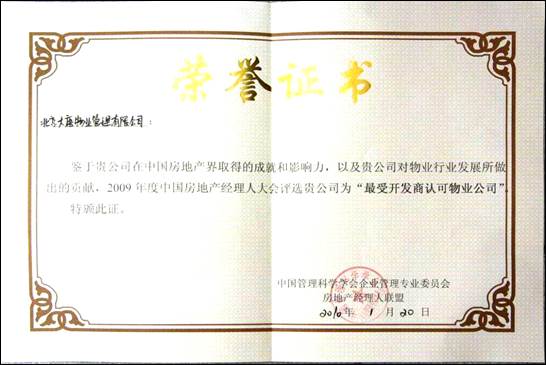 荣誉证书
北京大庭物业管理有限公司：
鉴于贵公司在中国房地产界取得的成就和影响力，以及贵公司对物业行业发展所做
出的贡献，2009年度中国房地产经理人大会评选贵公司为“最受开发商认可物业公司”，
特颁此证。
中国管理科学学会企业管理专业委员会
房地产经理人联盟
2010年 1月20日